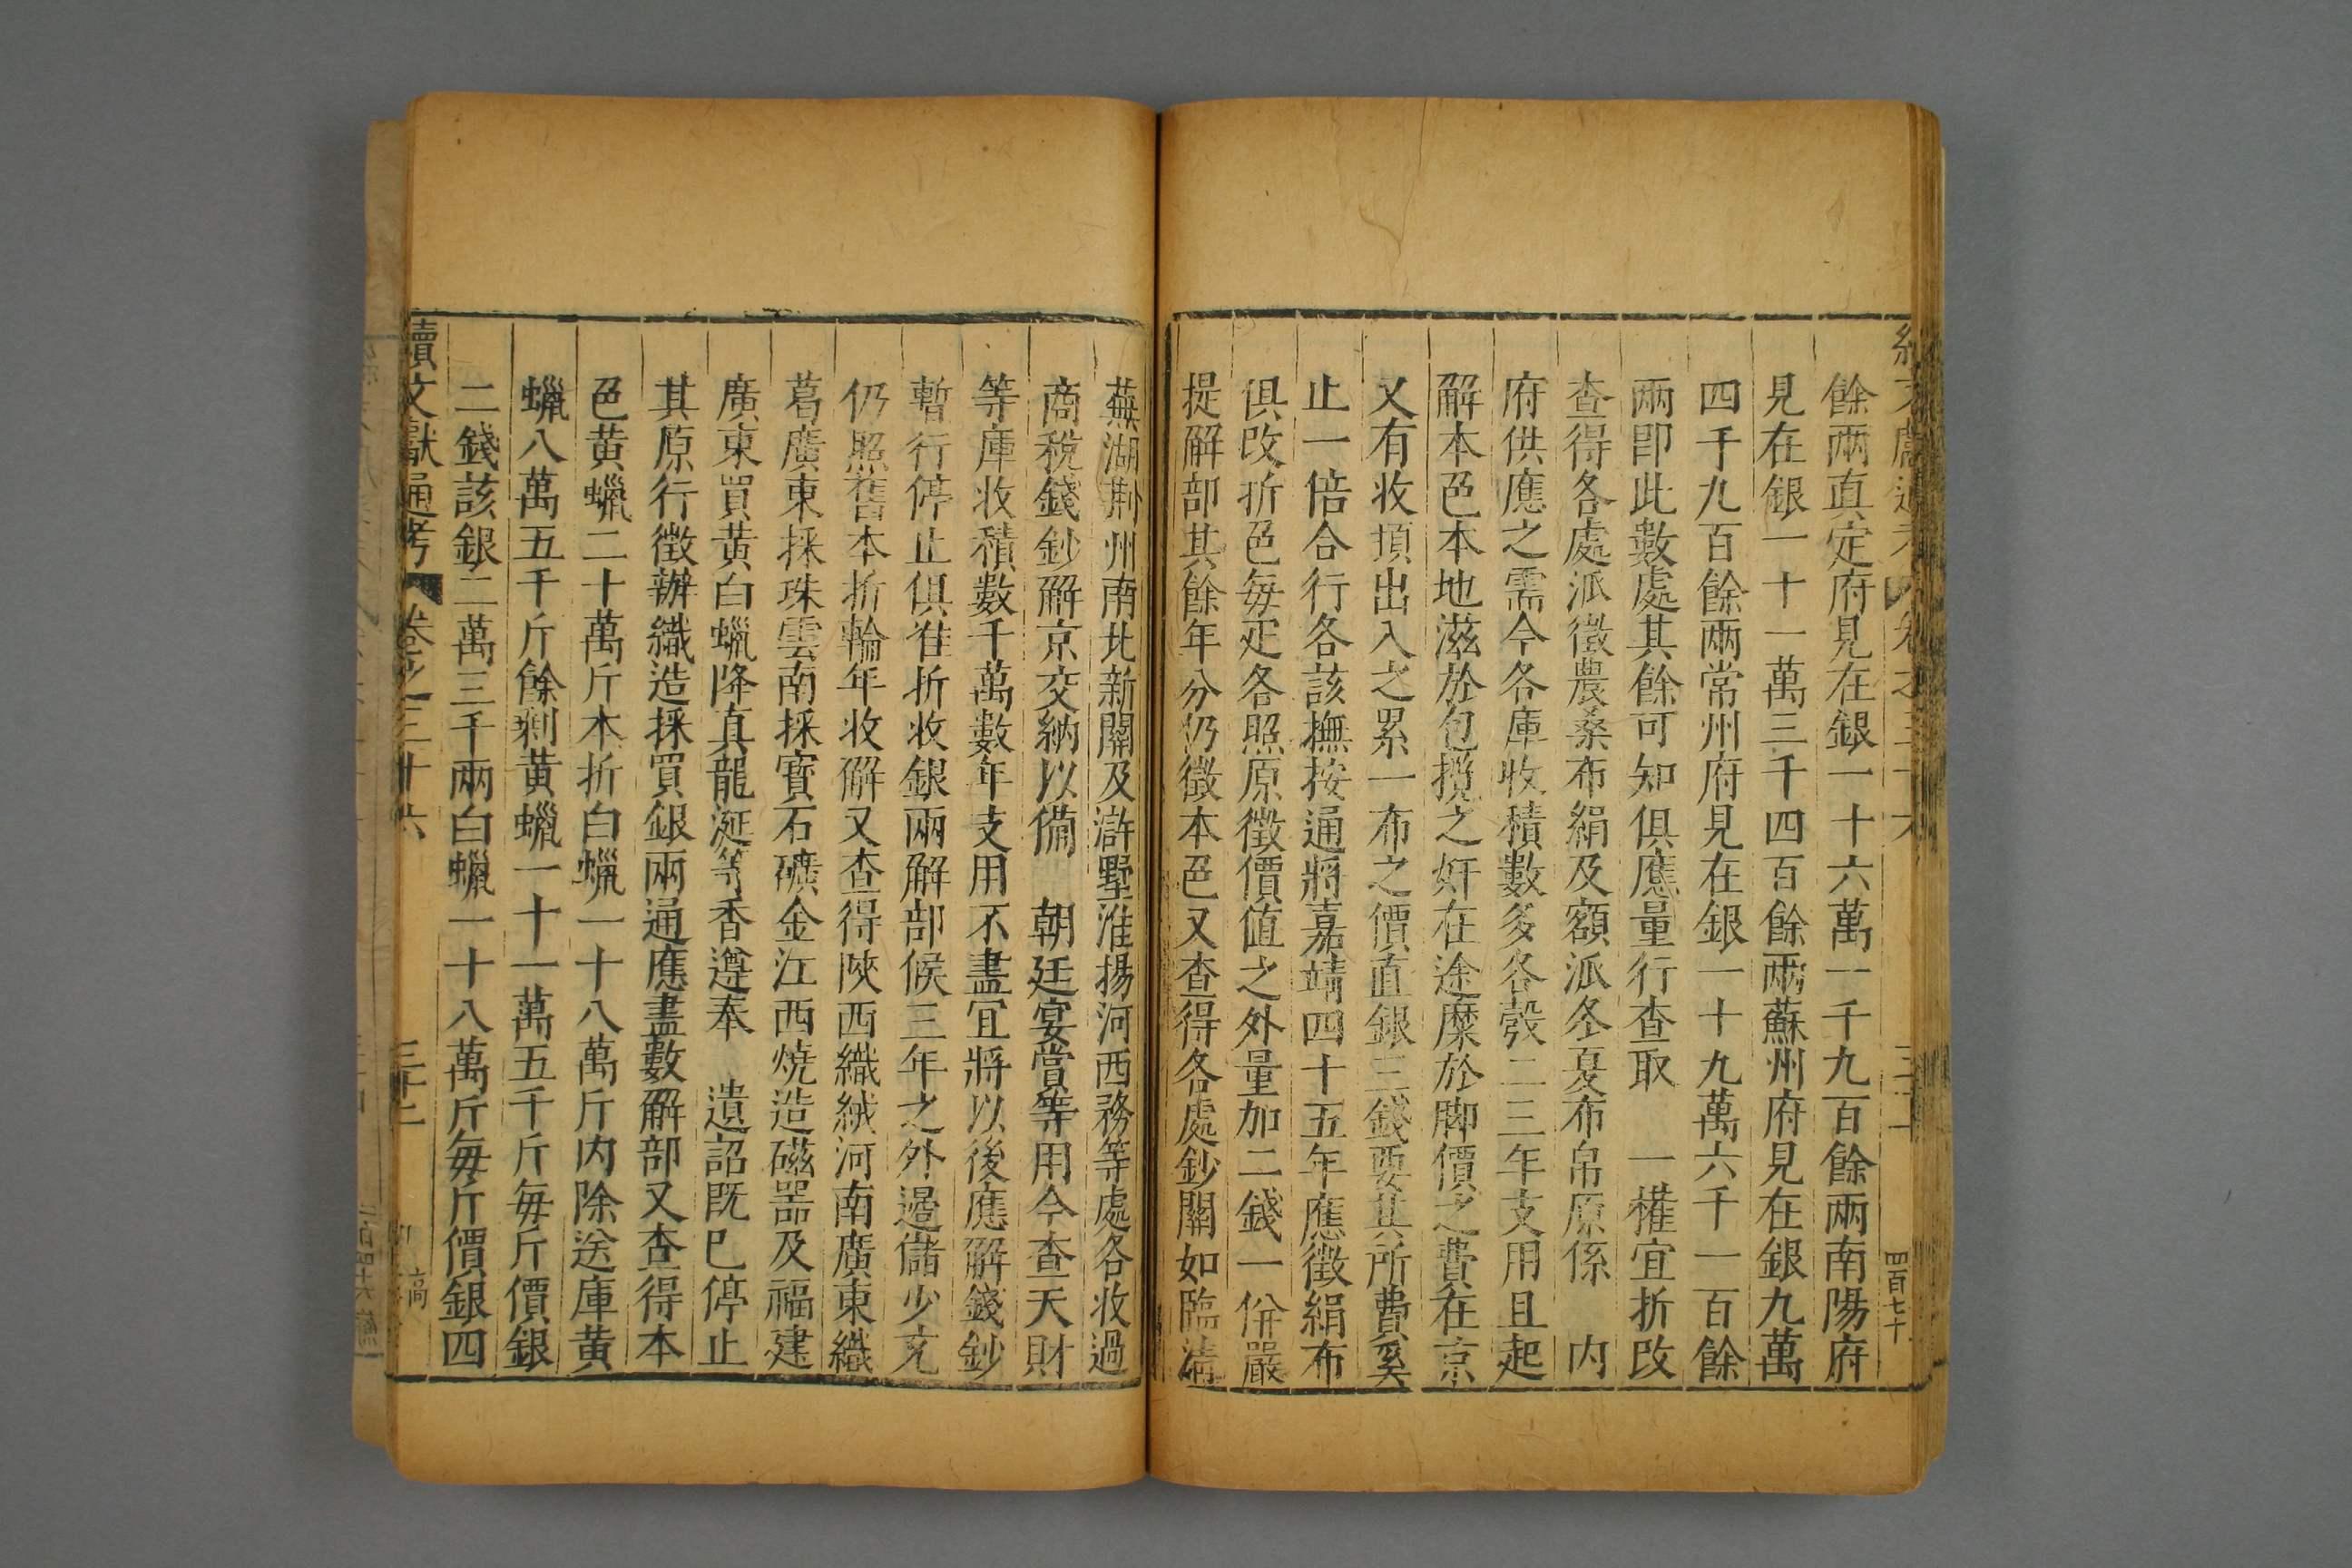 餘兩真定府見在銀一十六萬一千九百餘兩南陽府
見在銀一十一萬三千四百餘兩蘇州府見在銀九萬
四千九百餘兩常州府見在銀一十九萬六千一百餘
兩即此數處其餘可知俱應量行查取　一權宜折改
查得各處派徵農桑布絹及額派冬夏布帛原係　内
府供應之需今各庫收積數多各彀二三年支用且起
解本色本地滋於包攬之奸在途糜於脚價之費在京
又有收頓出入之累一布之價直銀三錢要其所費奚
止一倍合行各該撫按通將嘉靖四十五年應徵絹布
俱改折色每疋各照原徵價值之外量加二錢一併嚴
提解部其餘年分仍徵本色又查得各處鈔關如臨清
蕪湖荆州南北新關及滸墅淮揚河西務等處各收過
商稅錢鈔解京交納以備　朝廷宴賞等用今查天財
等庫收積數千萬數年支用不盡宜將以後應解錢鈔
暫行停止俱准折收銀兩解部候三年之外邊儲少充
仍照舊本折輪年收解又查得陝西織絨河南廣東織
葛廣東採珠雲南採寳石礦金江西燒造磁噐及福建
廣東買黄白蠟降真龍涎等香遵奉　遺詔既已停止
其原行徵辦織造採買銀兩通應盡數解部又查得本
色黄蠟二十萬斤本折白蠟一十八萬斤内除送庫黄
蠟八萬五千斤餘剩黄蠟一十一萬五千斤每斤價銀
二錢該銀二萬三千兩白蠟一十八萬斤每斤價銀四
續文獻通考　卷之三十六　三十二
四百七十